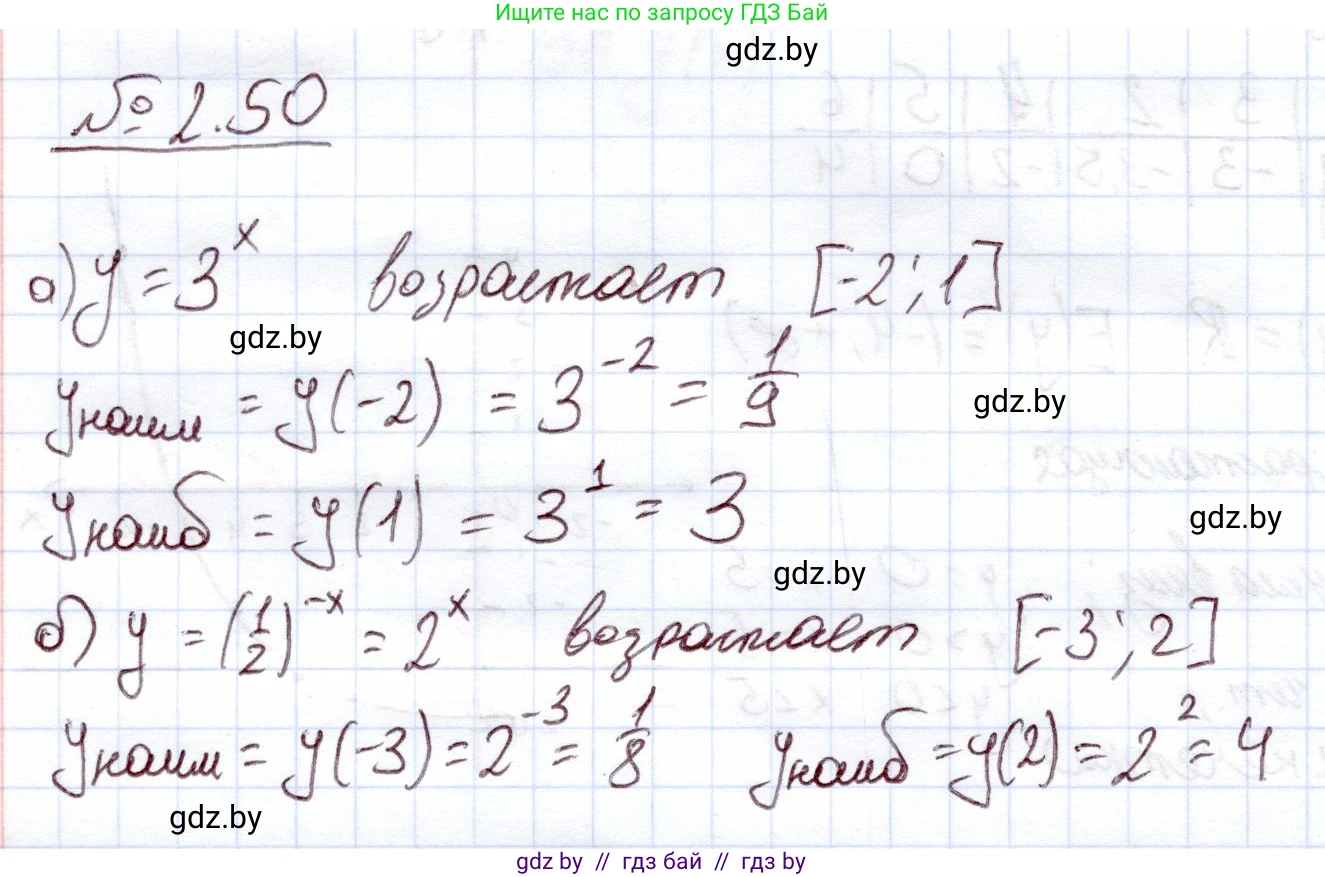 Ищите нас по запросу ГДЗ Бай
gdz.by
№ 2.50
а) y = 3^x возрастает [-2; 1]
gdz.by
y наим = y(-2) = 3^-2 = 1/9
gdz.by
y наиб = y(1) = 3^1 = 3
gdz.by
gdz.by
б) y = (1/2)^-x = 2^x возрастает [-3; 2]
y наим = y(-3) = 2^-3 = 1/8 y наиб = y(2) = 2^2 = 4
gdz.by
gdz by // гдз бай // гдз by